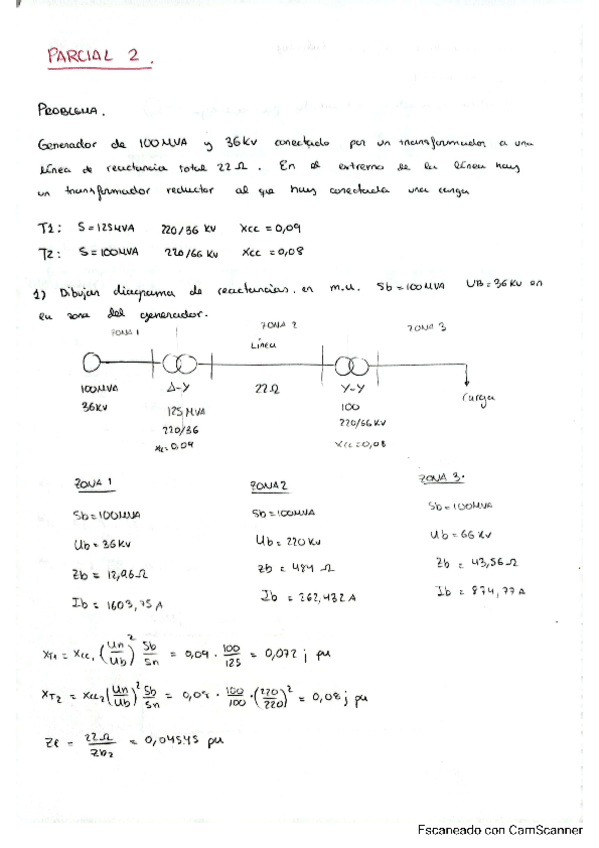 PARCIAL 2.
PROBLEMA.
Generador de 100MVA y 36Kv conectado por un transformador a una
línea de reactancia total 22Ω. En el extremo de la línea hay
un transformador reductor al que hay conectada una carga
T1: S=125MVA 220/36 KV Xcc=0,09
T2: S=100MVA 220/66 KV Xcc=0,08
1) Dibujar diagrama de reactancias, en m.u. Sb=100MVA UB=36Kv en
la zona del generador.
ZONA 1 ZONA 2 ZONA 3
Línea
100MVA Δ-Y 22Ω Y-Y Carga
36KV 125 MVA 100
220/36 220/66 KV
Xcc=0,09 Xcc=0,08
ZONA 1 ZONA 2 ZONA 3.
Sb=100MVA Sb=100MVA Sb=100MVA
Ub=36Kv Ub=220Kv Ub=66Kv
Zb=12,96Ω Zb=484Ω Zb=43,56Ω
Ib=1603,75A Ib=262,432A Ib=874,77A
XT1 = Xcc1 (Un/Ub)² Sb/Sn = 0,09 · 100/125 = 0,072 j pu
XT2 = Xcc2 (Un/Ub)² Sb/Sn = 0,08 · 100/100 · (220/220)² = 0,08 j pu
Zl = 22Ω/Zb2 = 0,04545 pu
Escaneado con CamScanner